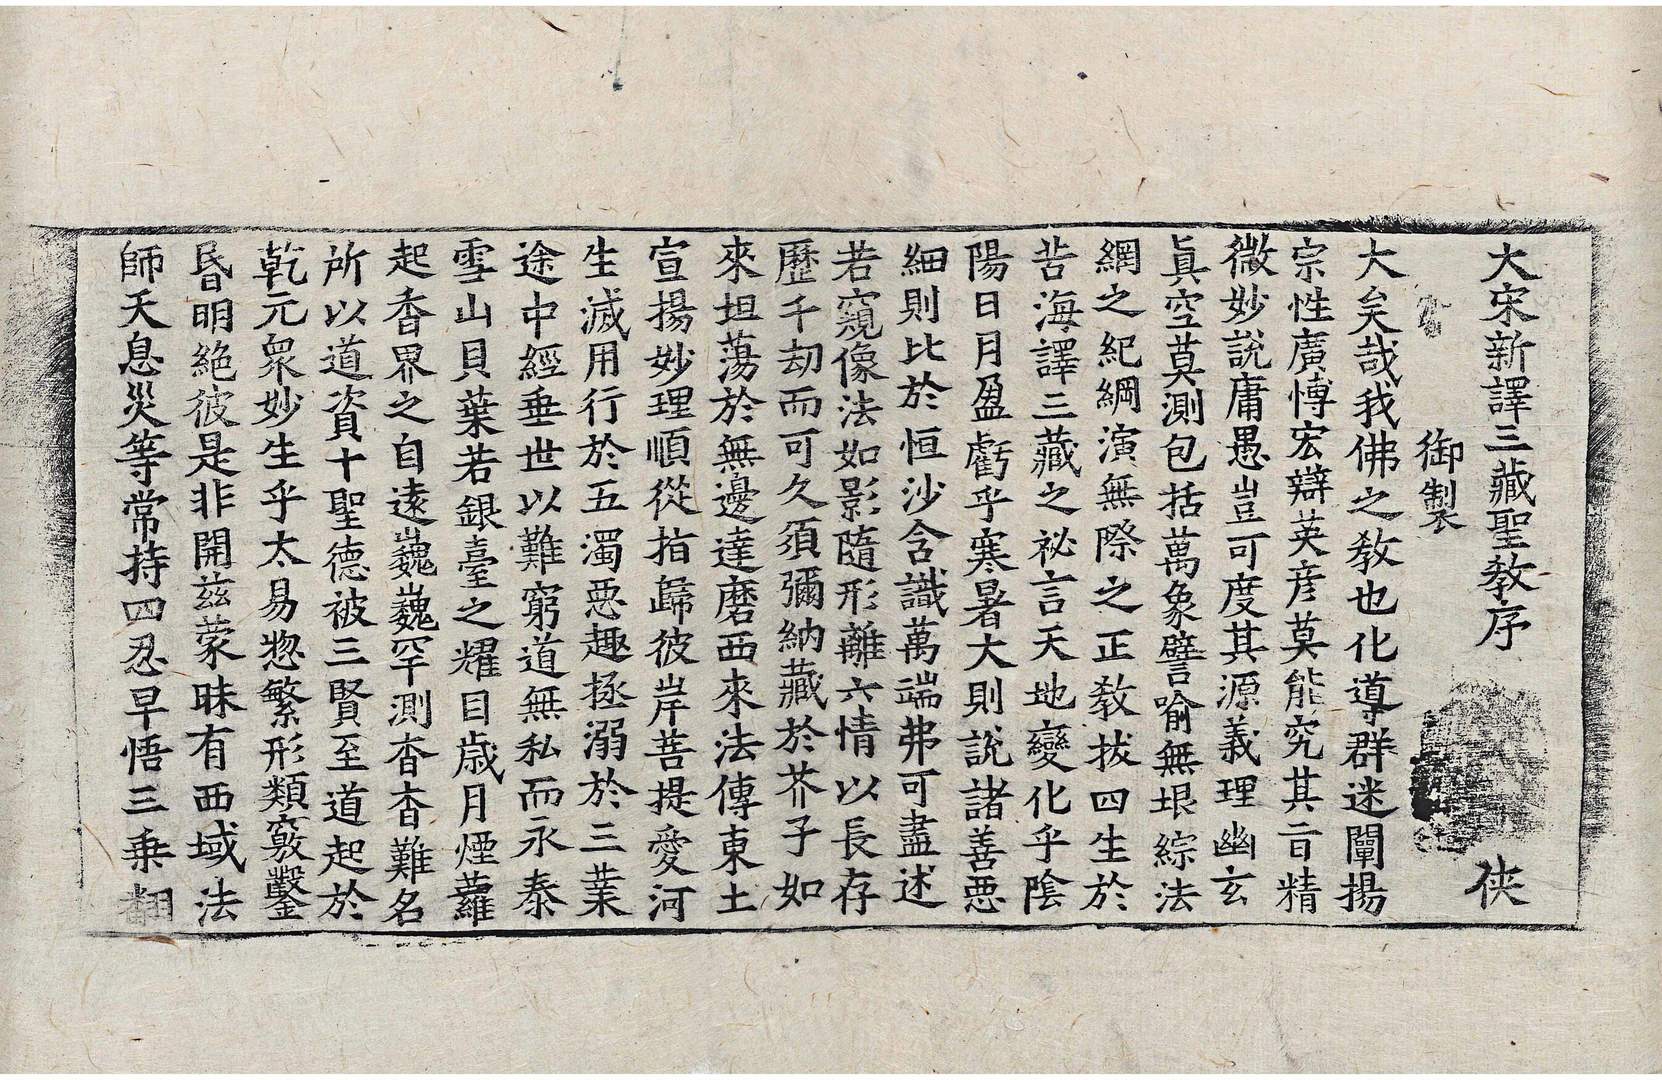 大宋新譯三藏聖教序 俠
御製
大矣哉我佛之教也化導群迷闡揚
宗性廣博宏辯英彦莫能究其旨精
微妙說庸愚豈可度其源義理幽玄
真空莫測包括萬象譬喻無垠綜法
網之紀綱演無際之正教拔四生於
苦海譯三藏之祕言天地變化乎陰
陽日月盈虧乎寒暑大則說諸善惡
細則比於恒沙含識萬端弗可盡述
若窺像法如影隨形離六情以長存
歷千劫而可久須彌納藏於芥子如
來坦蕩於無邊達磨西來法傳東土
宣揚妙理順從指歸彼岸菩提愛河
生滅用行於五濁惡趣拯溺於三業
途中經垂世以難窮道無私而永泰
雪山貝葉若銀臺之耀目歲月煙蘿
起香界之自遠巍巍罕測杳杳難名
所以道資十聖德被三賢至道起於
乾元眾妙生乎太易惣繁形類竅鑿
昏明絕彼是非開茲蒙昧有西域法
師天息災等常持四忍早悟三乘翻